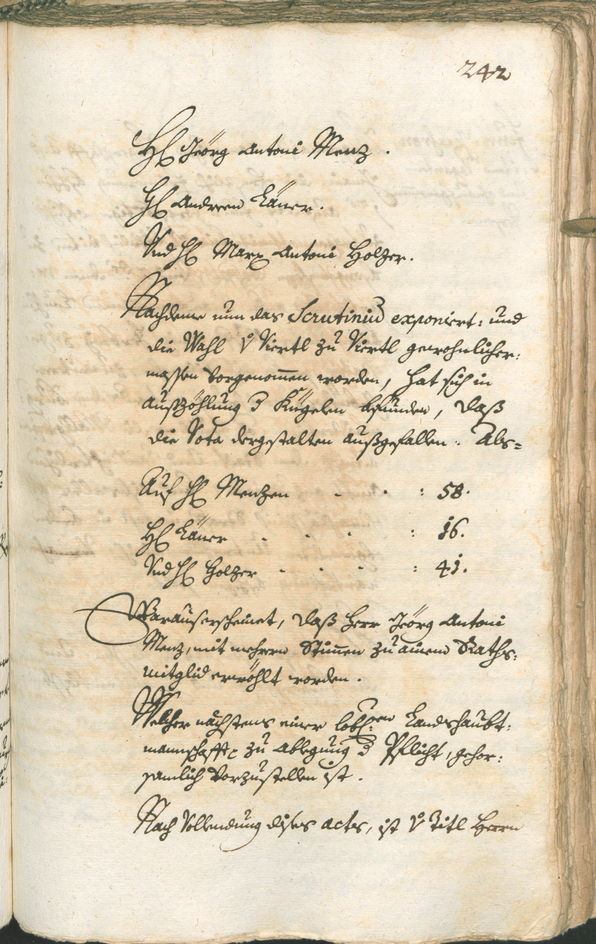 242
H. Jeörg Antoni Menz.
H. Andreen Läner.
Und H. Marx Antoni Holzer.
Nachdeme nun das Scrutiniu exponiert: und
die Wahl v Viertl zu Viertl gewohnlicher:
massen vorgenommen worden, hat sich in
aufzöhlung d Kugelen befunden, daß
die Vota dergestalten außgefallen. Als=
Auf H. Menzen - - : 58.
H. Läner - - - : 16.
Und H. Holzer - - - : 41.
Warauß erscheinet, daß Herr Jeörg Antoni
Menz, mit mehrern Stimmen zu ainem Raths:
mitglid erwöhlt worden.
Welcher nächstens einer löbl:en Landshaubt:
mannschafft zu ablegung d Pflicht, gehor:
samlich vorzustellen ist.
Nach Vollendung dises actus, ist v Titl Herrn